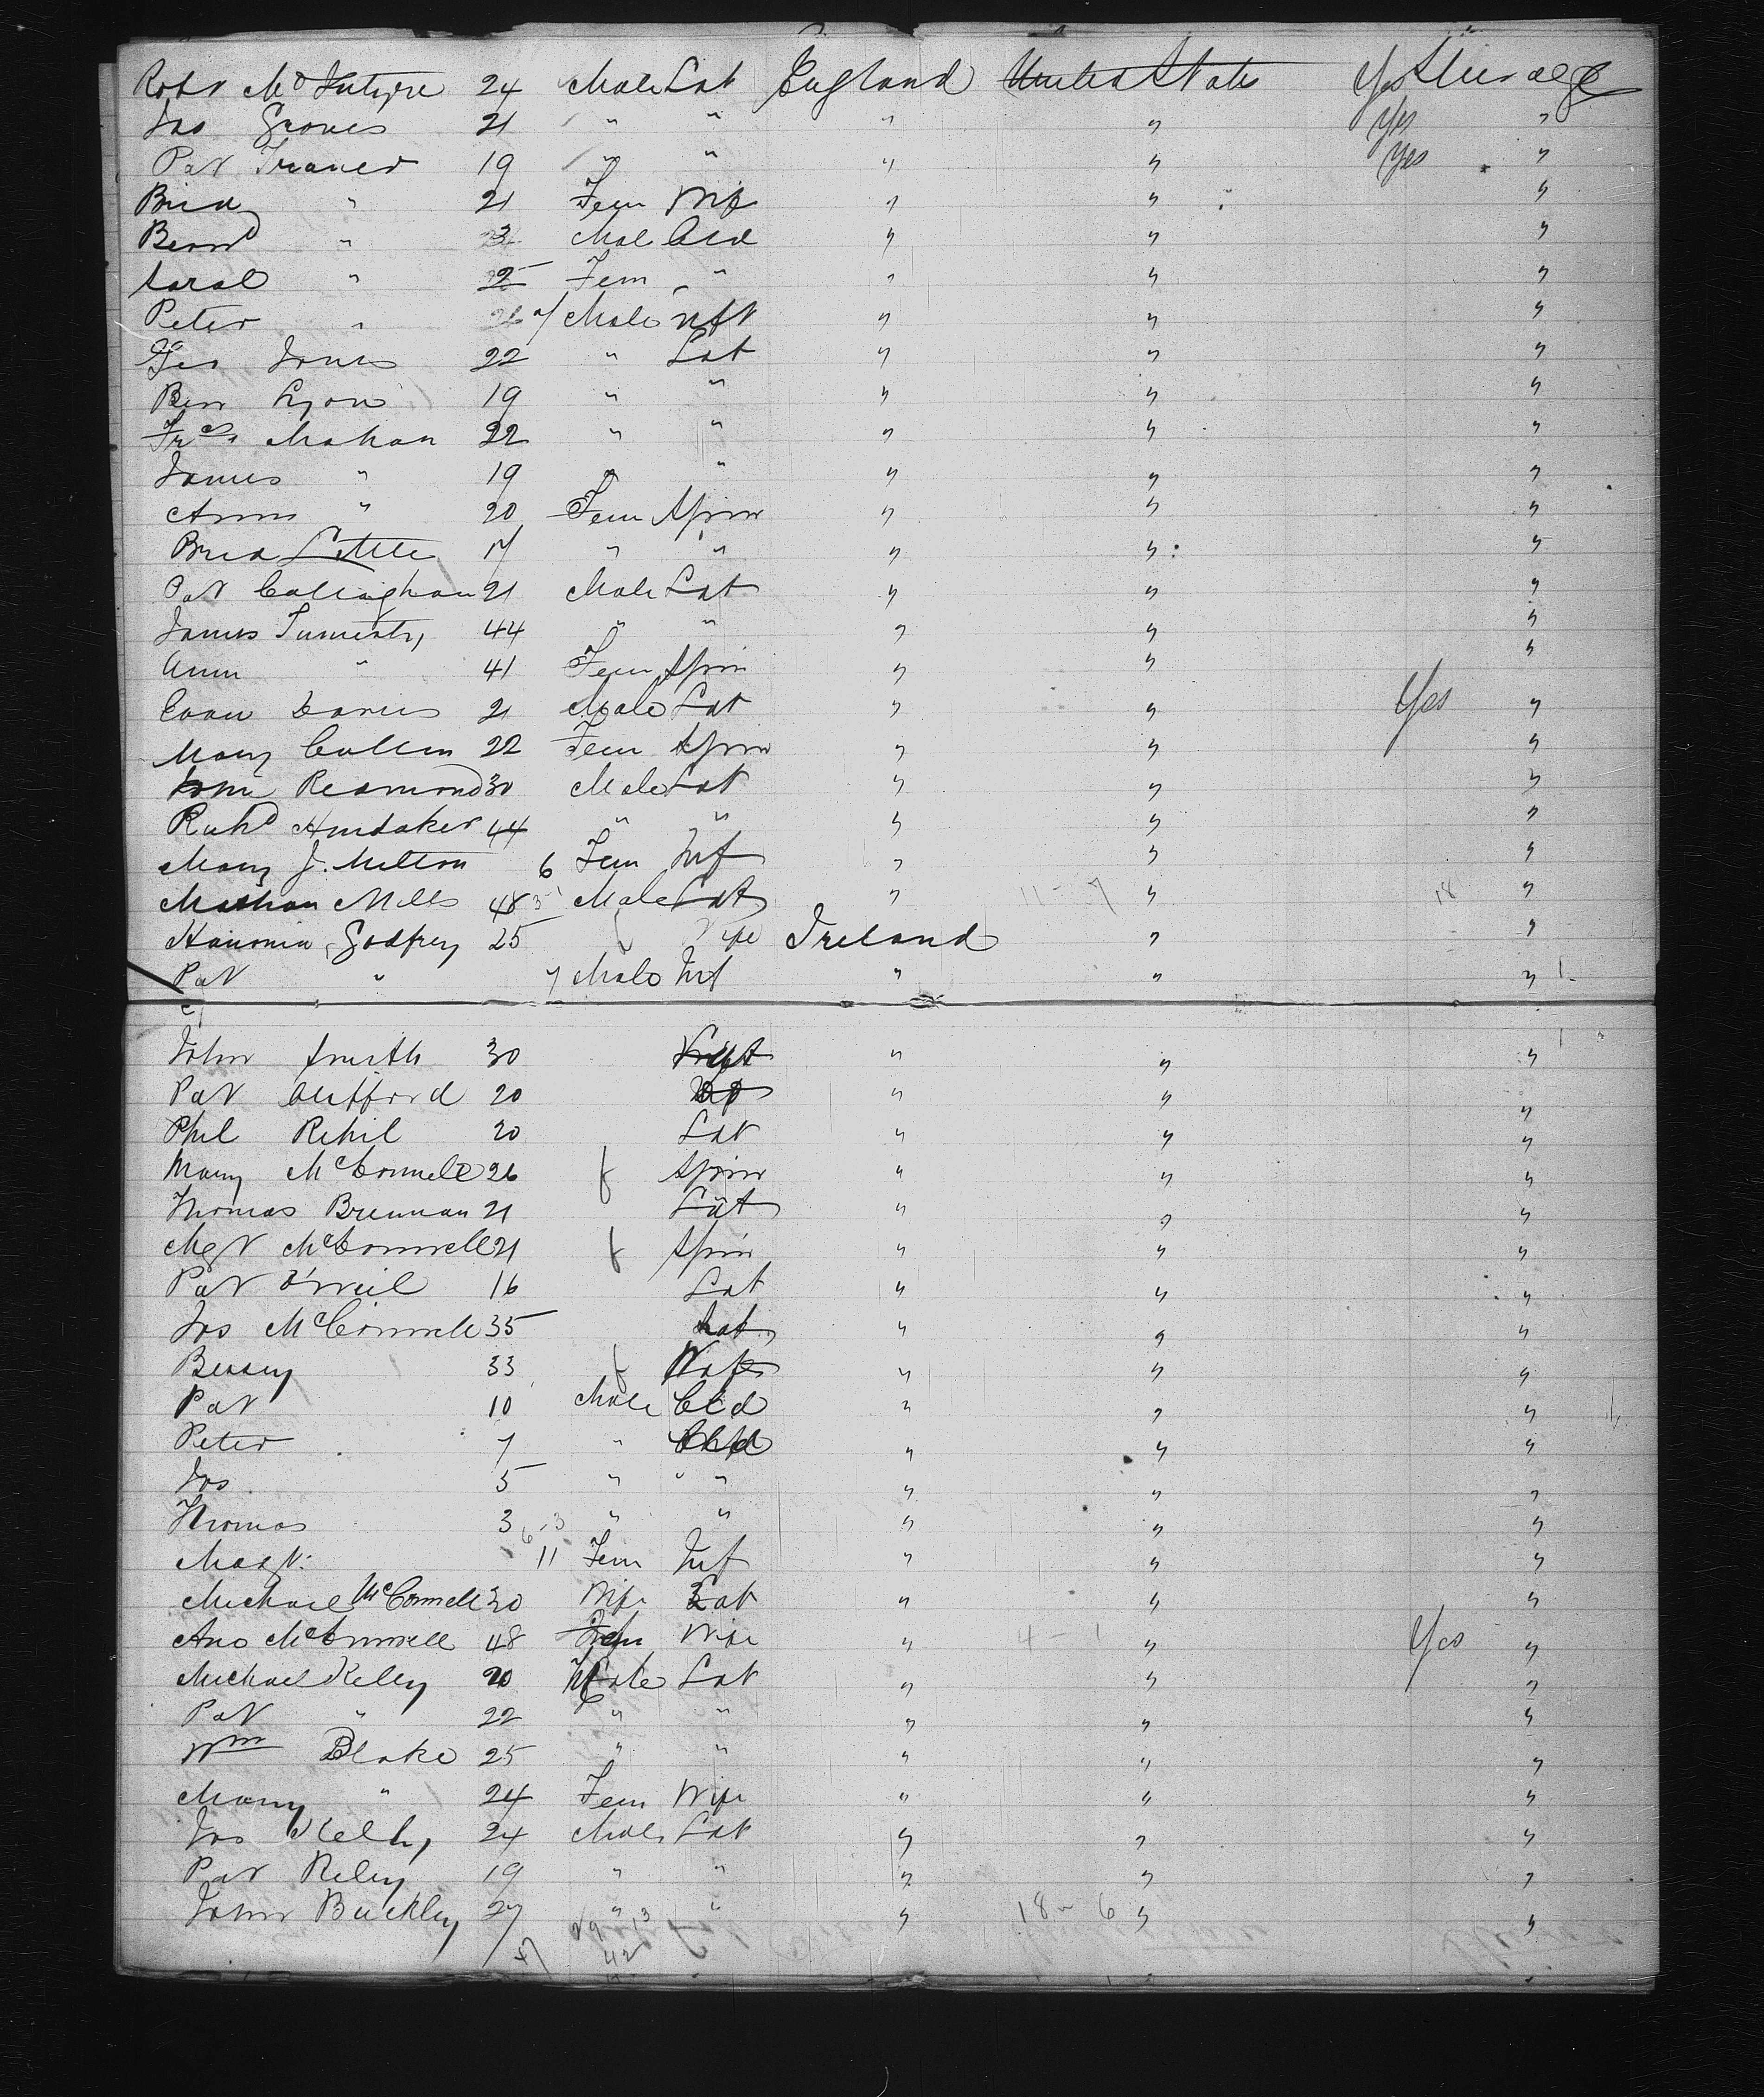 Robt McIntyre 24 Male Lab England United States Yes Steerage
Jas Groves 21 " " " " Yes "
Pat Traner 19 " " " " Yes "
Brid " 21 Fem Wife " " "
Bernd " 3 Male Cld " " "
Sarah " 2 Fem " " " "
Peter " 7 Male Inft " " "
Geo Jones 22 " Lab " " "
Ben Lyons 19 " " " " "
Frcs Mahan 22 " " " " "
James " 19 " " " " "
Ann " 20 Fem Spinr " " "
Brid Little 17 " " " " "
Pat Callaghan 21 Male Lab " " "
James 44 " " " " "
Ann " 41 Fem Spin " " "
Evan Davies 21 Male Lab " " Yes "
Mary Cullen 22 Fem Spinr " " "
John Redmond 30 Male Lab " " "
Richd 44 " " " " "
Mary J. Melton 6 Fem Inf " " "
Mills 48 Male Lab " 11-7 " 18 "
Godfrey 25 f Wife Ireland " "
Pat " 7 Male Inf " " "
John Smith 30 " " "
Pat Clifford 20 " " "
Phil Rehil 20 Lab " " "
Mary McConnell 26 f Spinr " " "
Thomas Brennan 21 Lab " " "
Mgt McConnell 21 f Spin " " "
Pat O'Neil 16 Lab " " "
Jos McConnell 35 Lab " " "
Bessy 33 f Wife " " "
Pat 10 Male Cld " " "
Peter 7 " Chd " " "
Jos 5 " " " " " "
Thomas 3 6-3 " " " " "
Magt. 11 Fem Inf " " "
Michael McConnell 30 Wife Lab " " "
Ann McConnell 48 Fem Wife " 4-1 " Yes "
Michael Kelly 20 Male Lab " " "
Pat " 22 " " " " "
Wm Blake 25 " " " " "
Mary " 24 Fem Wife " " "
Jos Kelly 24 Male Lab " " "
Pat Riley 19 " " " " "
John Buckley 27 " " " 18-6 " "
42